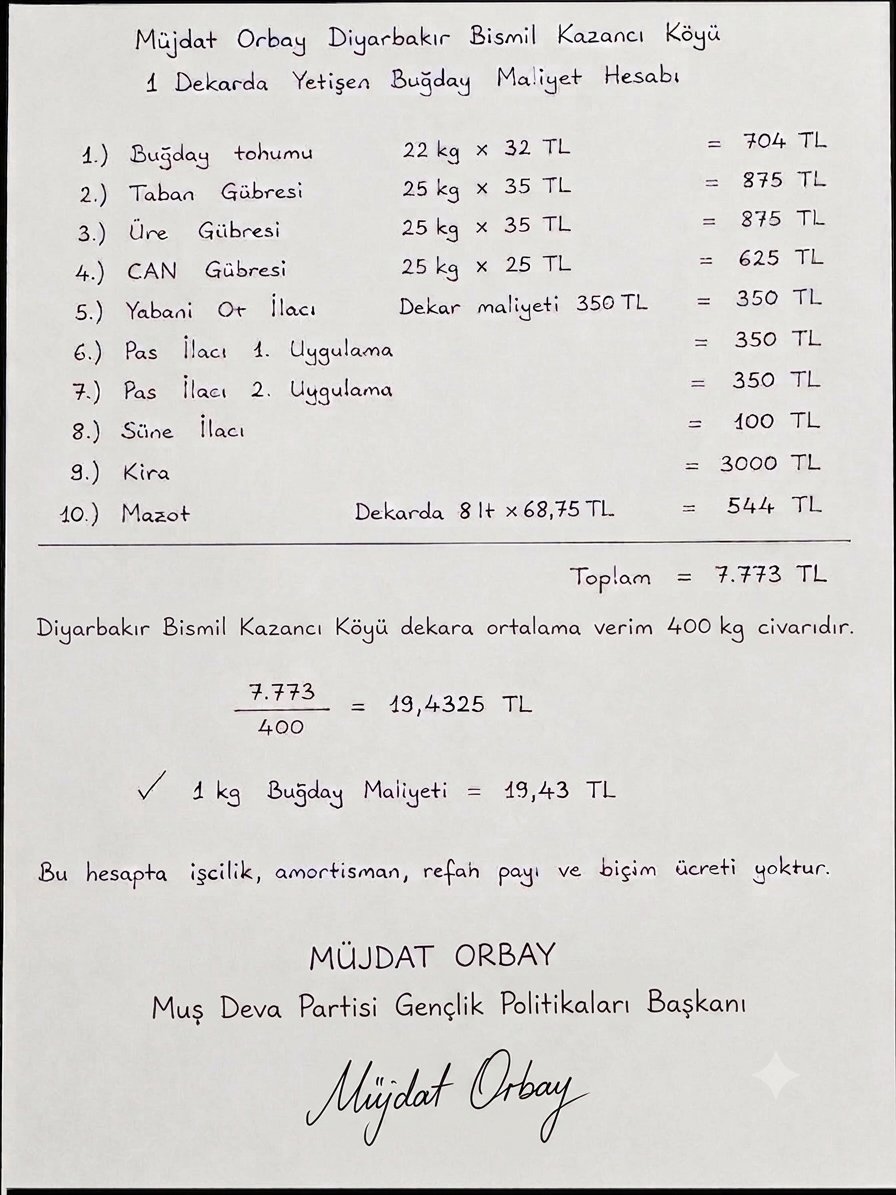 Müjdat Orbay Diyarbakır Bismil Kazancı Köyü
1 Dekarda Yetişen Buğday Maliyet Hesabı
1.) Buğday tohumu 22 kg x 32 TL = 704 TL
2.) Taban Gübresi 25 kg x 35 TL = 875 TL
3.) Üre Gübresi 25 kg x 35 TL = 875 TL
4.) CAN Gübresi 25 kg x 25 TL = 625 TL
5.) Yabani Ot İlacı Dekar maliyeti 350 TL = 350 TL
6.) Pas İlacı 1. Uygulama = 350 TL
7.) Pas İlacı 2. Uygulama = 350 TL
8.) Süne İlacı = 100 TL
9.) Kira = 3000 TL
10.) Mazot Dekarda 8 lt x 68,75 TL = 544 TL
Toplam = 7.773 TL
Diyarbakır Bismil Kazancı Köyü dekara ortalama verim 400 kg civarıdır.
7.773
400
= 19,4325 TL
✓ 1 kg Buğday Maliyeti = 19,43 TL
Bu hesapta işcilik, amortisman, refah payı ve biçim ücreti yoktur.
MÜJDAT ORBAY
Muş Deva Partisi Gençlik Politikaları Başkanı
Müjdat Orbay